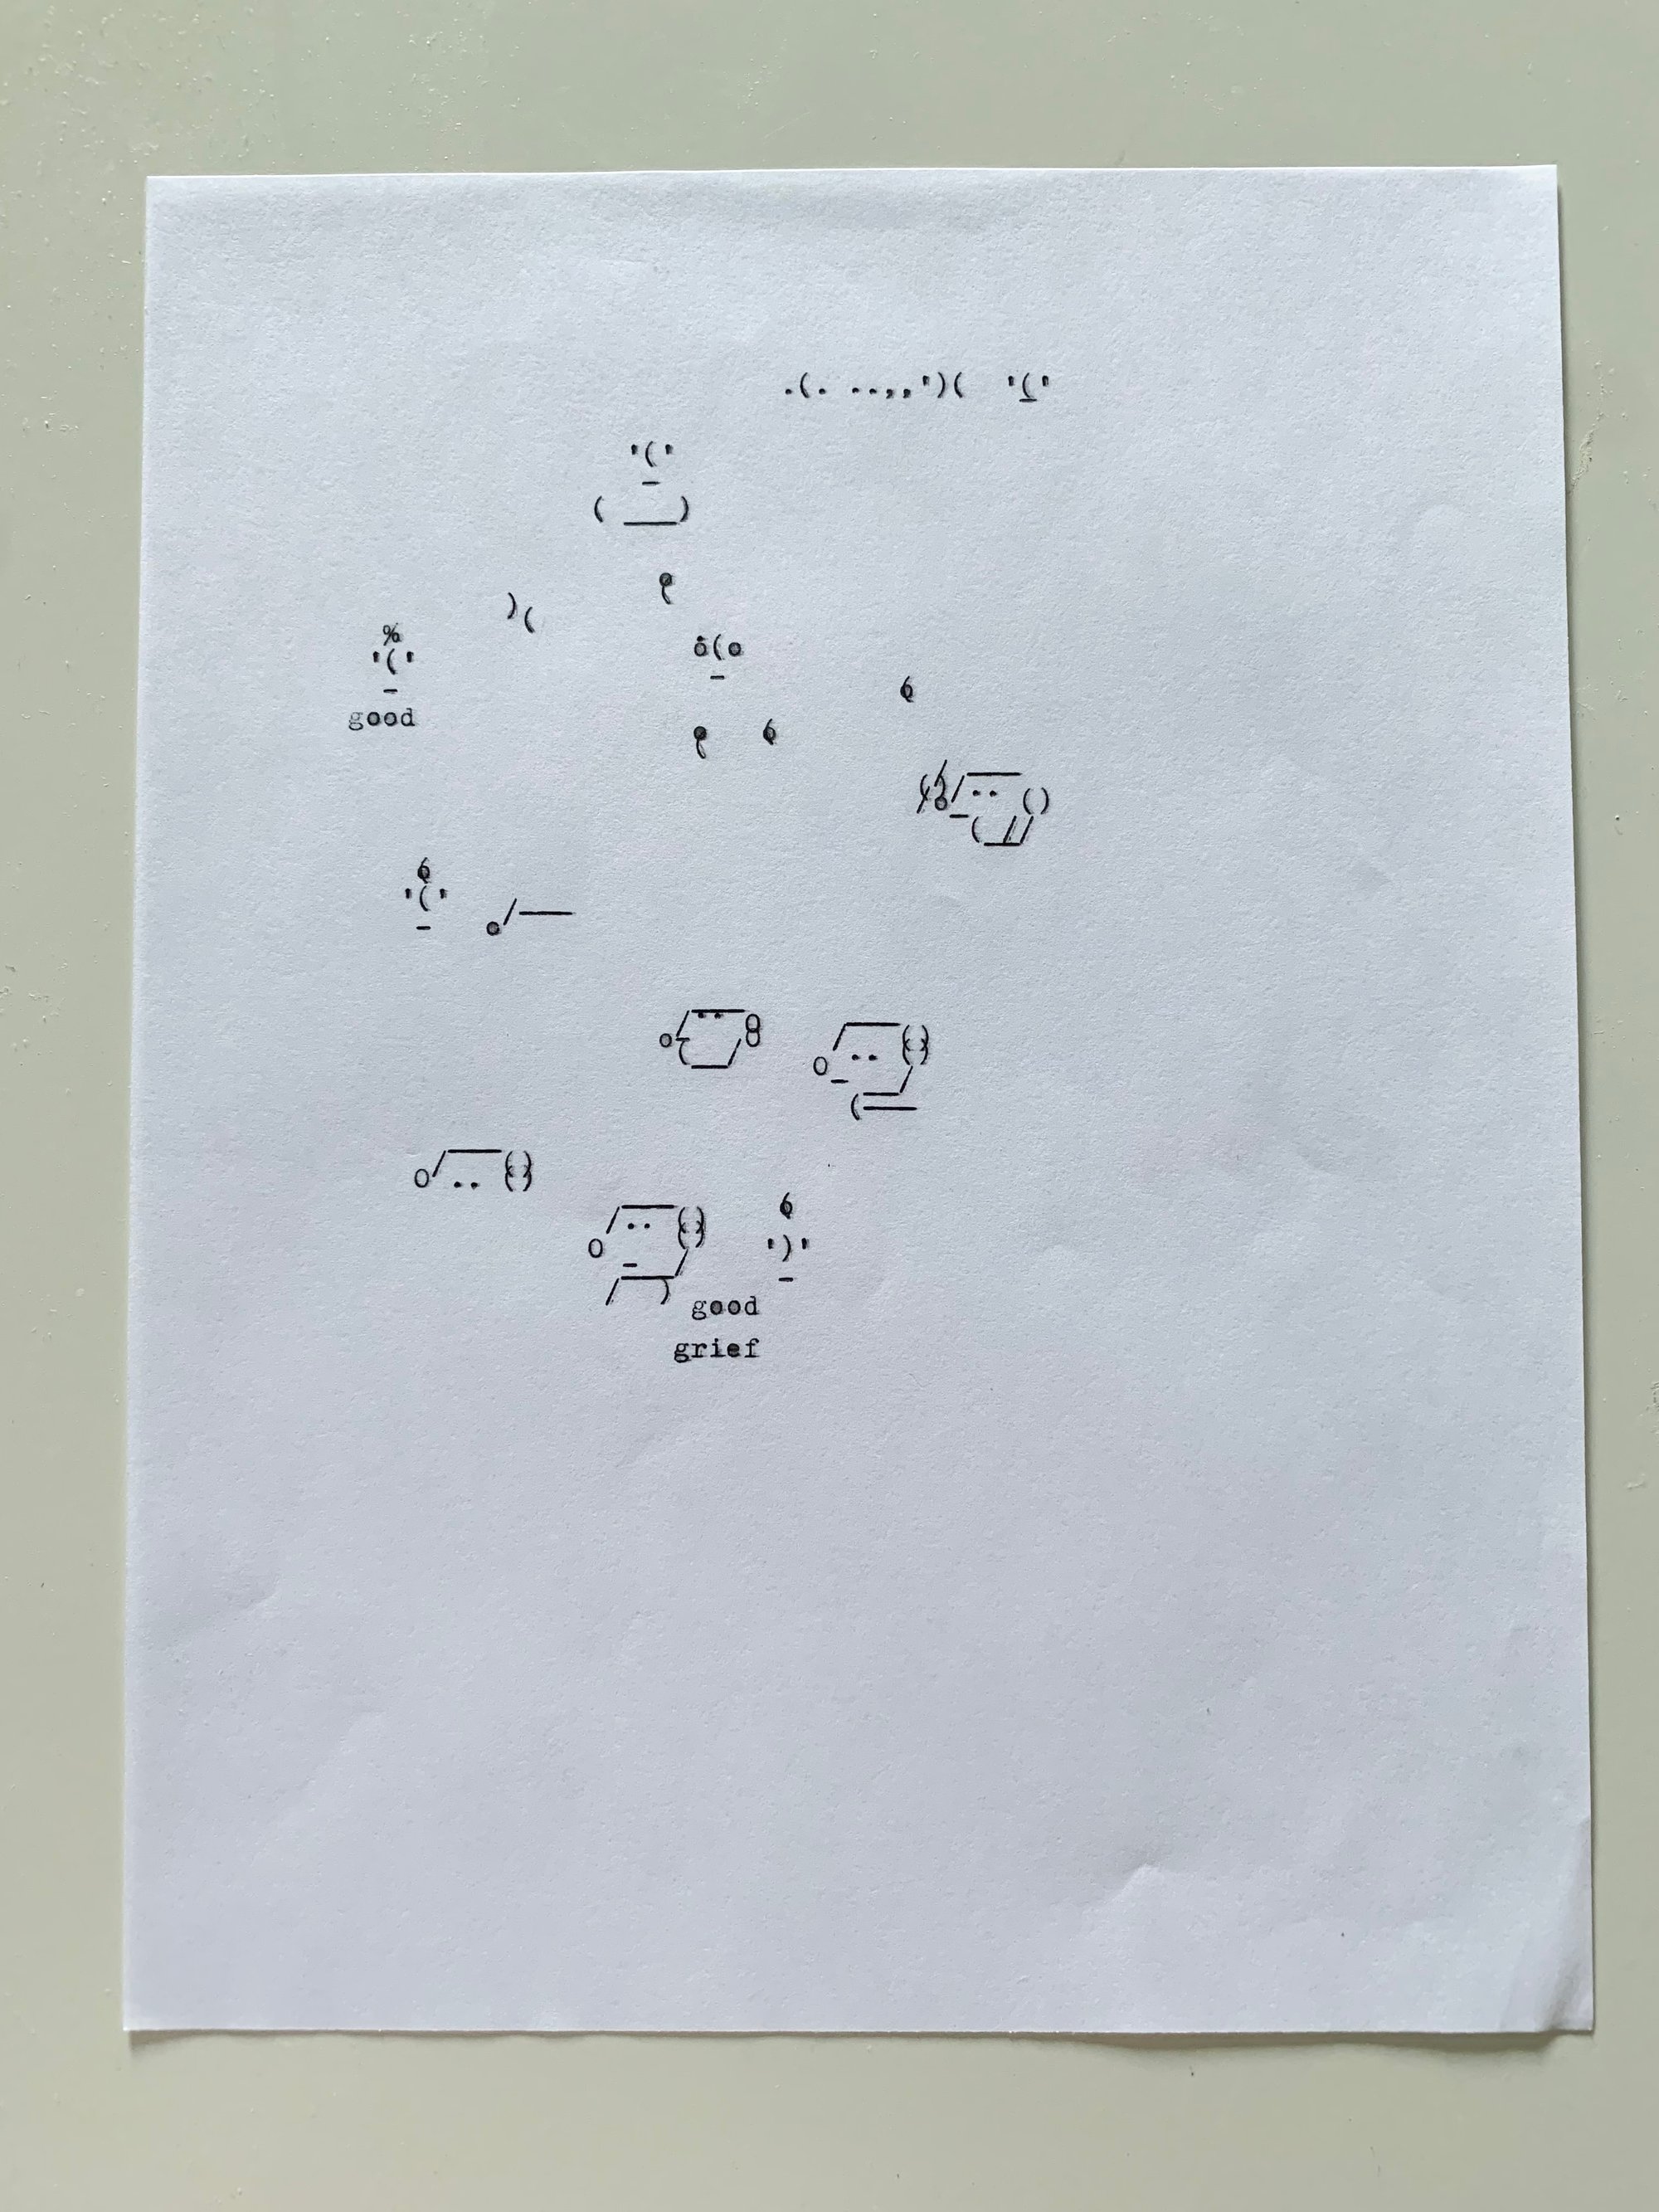 good
good
grief